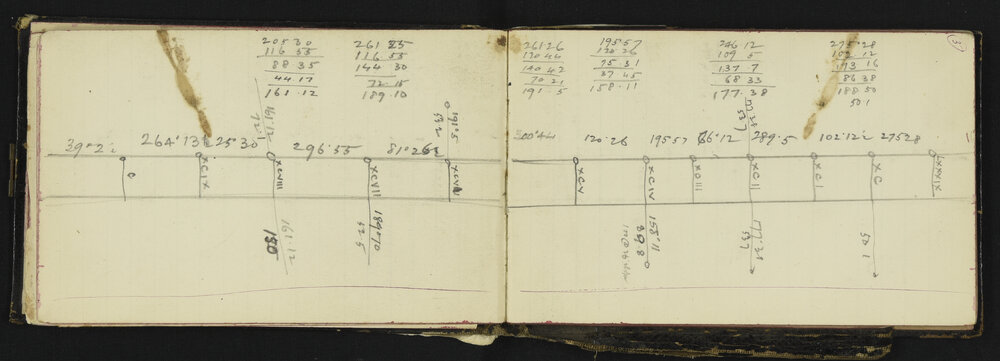 205 30
116 55
88 35
44.17
161.12
261 25
116 55
144 30
72.15
189.10
161.12
72.1
191.5
39°2
264°13
25°30
296.55
81°26
C
XCIX
XCVIII
XCVII
XCVI
161.12
150
189°10
52.5
261.26
120 44
140 42
70 21
191.5
195.57
120 26
75.31
37 45
158.11
246 12
109 5
137.7
68 33
177.38
275.28
102 12
173 16
86 38
188 50
50 1
177 38
537
120.26
195 57
289.5
102°12
275 28
XCV
XCIV
XCIII
XCII
XCI
XC
LXXXIX
158°11
89.8
177°38
537
50 1